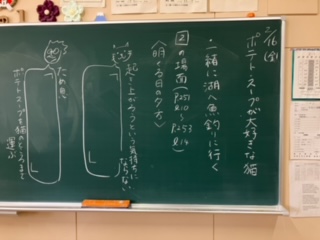 2/16(金)
ポテトスープが大好きな猫
・一緒に湖へ魚釣りに行く
2の場面(P251 L10〜P253 L14)
〈明くる日の夕方〉
起き上がろうという気持ちにならない
ため息
ポテトスープを猫のところまで運ぶ